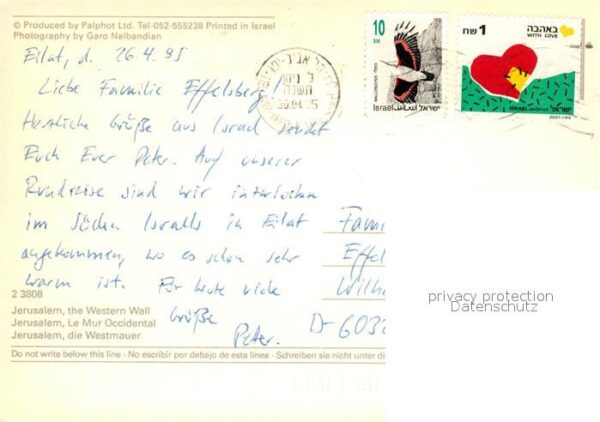 © Produced by Palphot Ltd. Tel-052-555238 Printed in Israel
Photography by Garo Nalbandian
Eilat, d. 26.4.95
Liebe Familie Effelsberg!
Herzliche Grüße aus Israel sendet
Euch Euer Peter. Auf unserer
Rundreise sind wir inzwischen
im Süden Israels in Eilat
angekommen, wo es schon sehr
warm ist. Für heute viele
Grüße
Peter.
2 3808
Jerusalem, the Western Wall
Jerusalem, Le Mur Occidental
Jerusalem, die Westmauer
Do not write below this line - No escribir por debajo de esta línea - Schreiben sie nicht unter di
10
אג
Israel ישראל
1 שח
באהבה
WITH LOVE
ISRAEL ישראל
30.04.
Fami
Effel
Wilh
D-603
privacy protection
Datenschutz